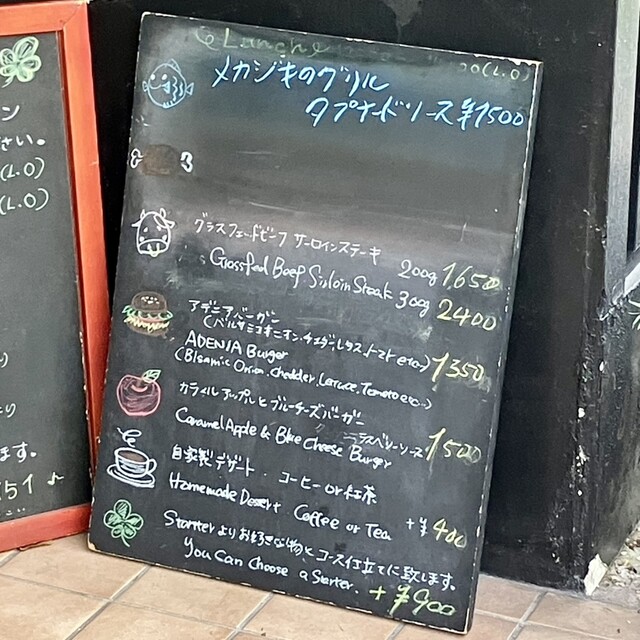 Lunch
00(L.O)
メカジキのグリル
タプナードソース ¥1500
グラスフェッドビーフ サーロインステーキ
200g 1650
Grassfed Beef Sirloin Steak 300g 2400
アデニアバーガー
(バルサミコオニオン、チェダー、レタス、トマト etc…)
ADENIA Burger 1350
(Blsamic Onion, chedder, Lettuce, Tomato etc…)
キャラメルアップルとブルーチーズバーガー
ラズベリーソース 1500
Caramel Apple & Blue Cheese Burger
自家製デザート コーヒー or 紅茶
Homemade Desert Coffee or Tea +¥400
Starterよりお好きな物とコース仕立てに致します。
You can choose a Starter. +¥900
ン
さい。
(L.O)
(L.O)
り
ます。
51